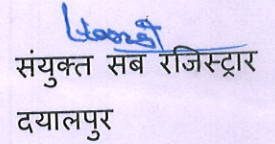 संयुक्त सब रजिस्ट्रार
दयालपुर